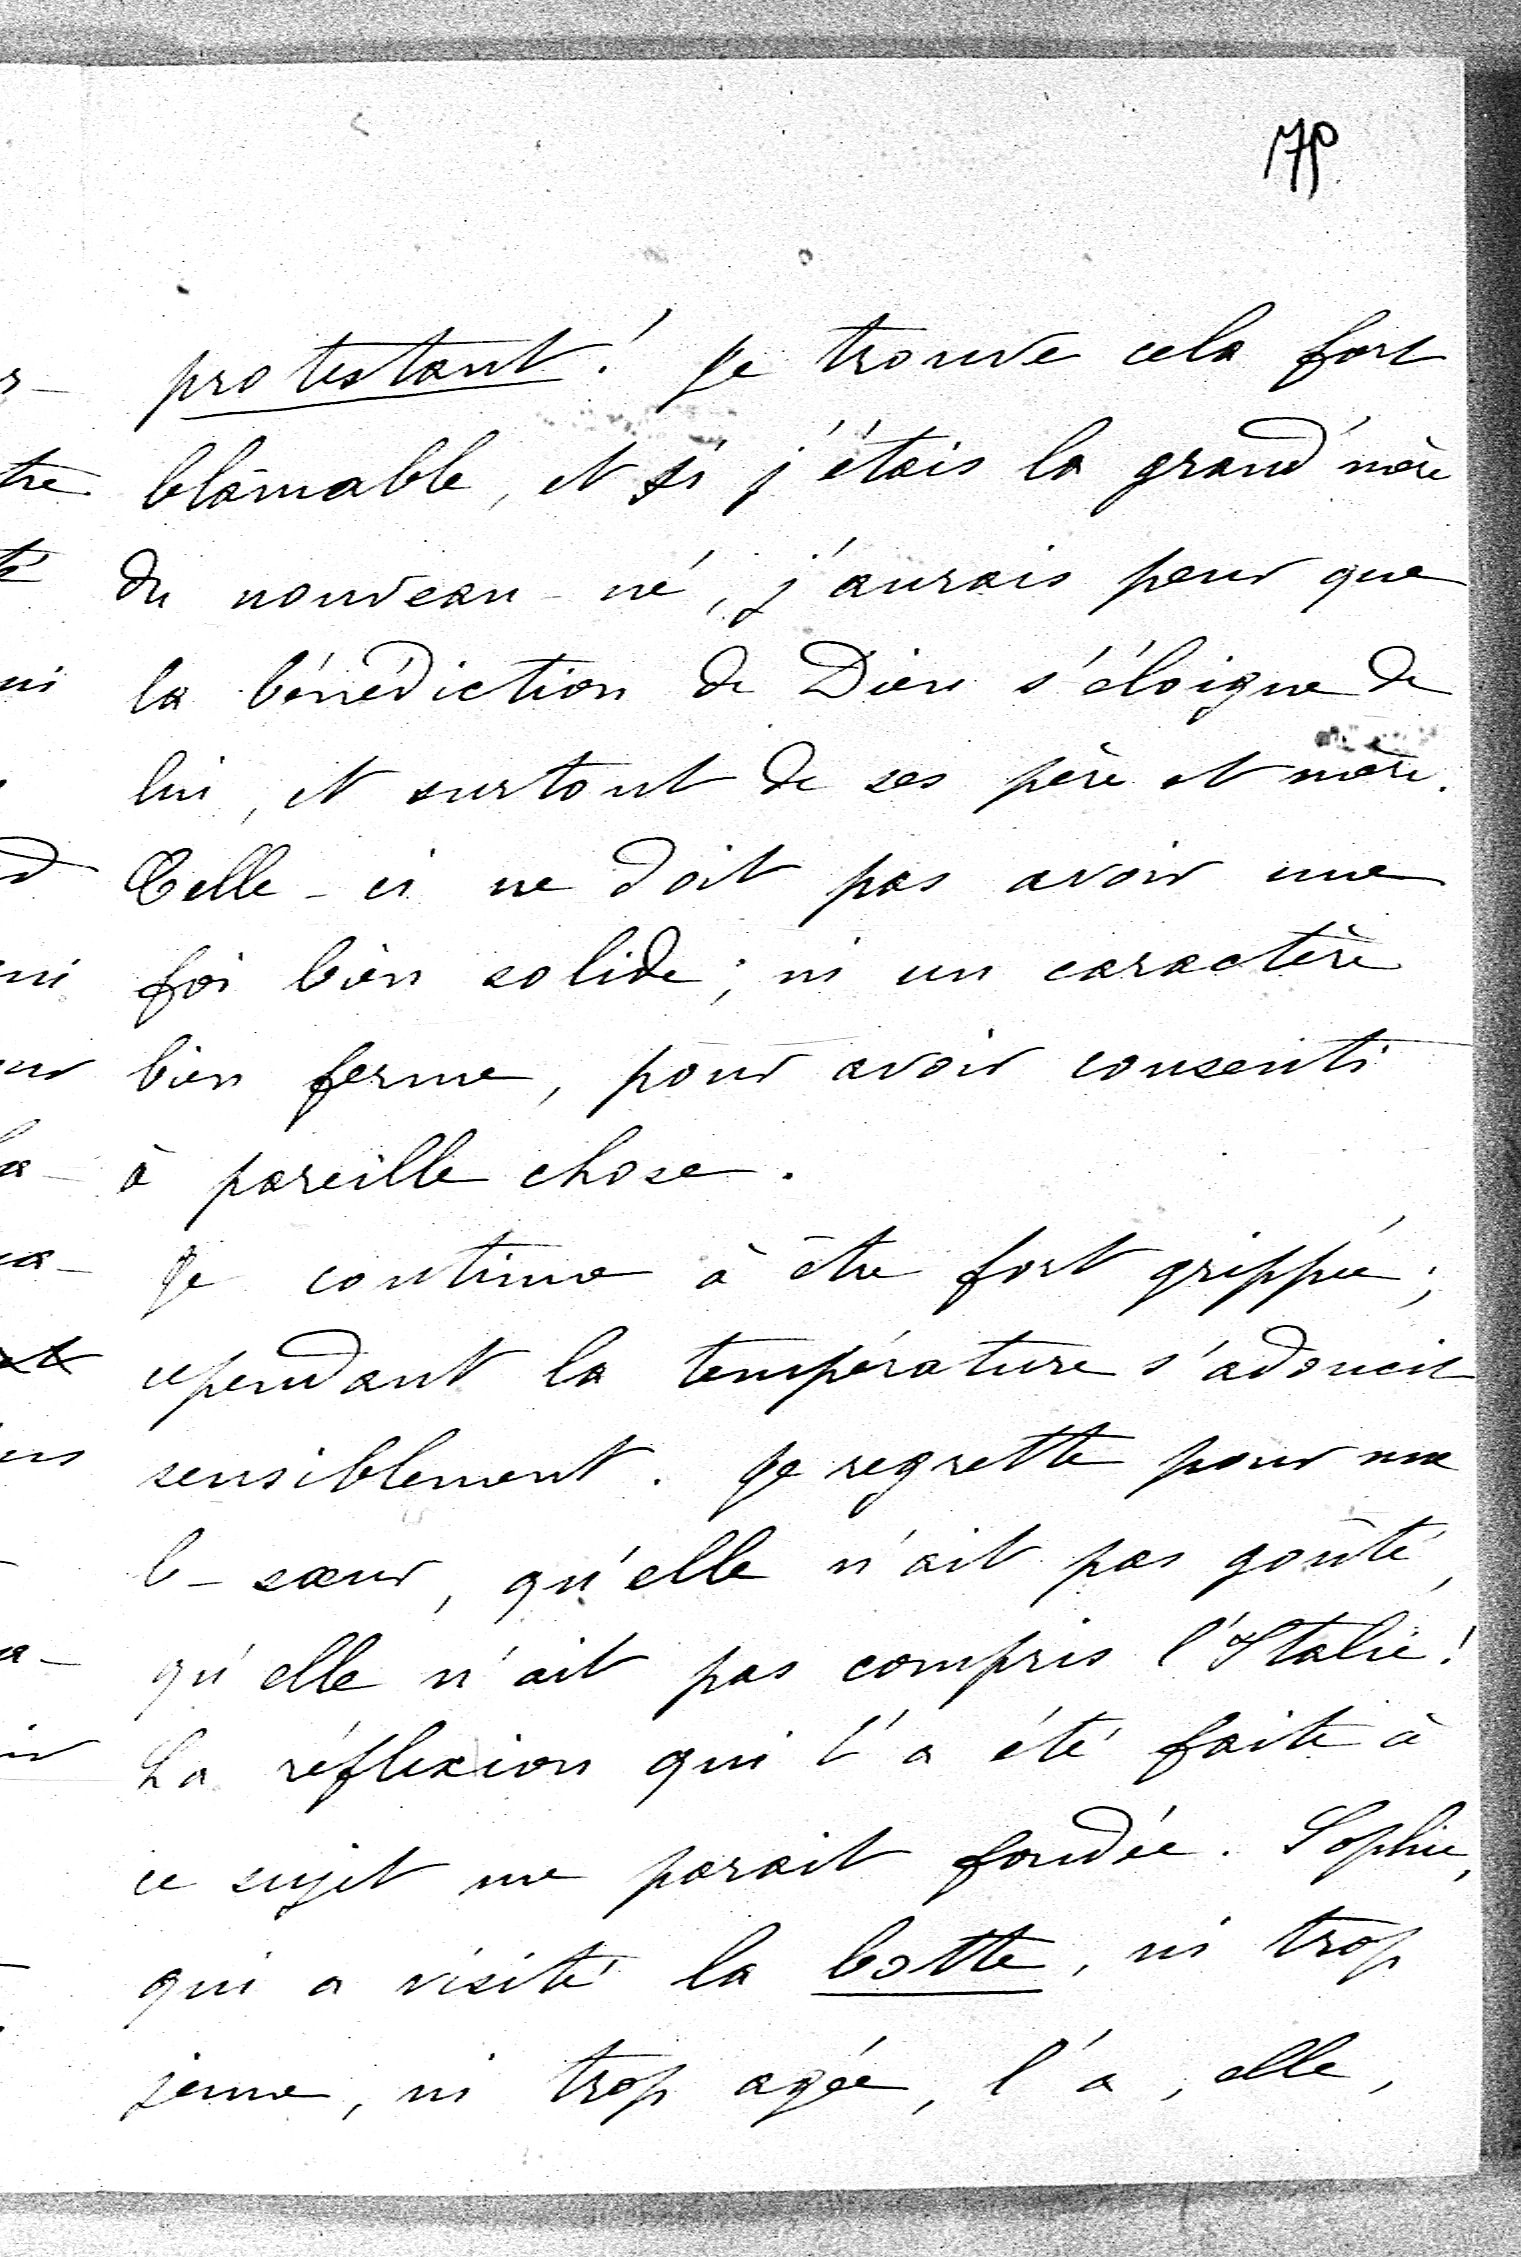 protestant! Je trouve cela fort
blâmable, et si j'étais la grand'mère
du nouveau-né, j'aurais peur que
la bénédiction de Dieu s'éloigne de
lui, et surtout de ses père et mère.
Celle-ci ne doit pas avoir une
foi bien solide; ni un caractère
bien ferme, pour avoir consenti
à pareille chose.
Je continue à être fort grippée;
cependant la température s'adoucit
sensiblement. Je regrette pour ma
b-sœur, qu'elle n'ait pas goûté,
qu'elle n'ait pas compris l'Italie!
La réflexion qui t'a été faite à
ce sujet me parait fondée. Sophie,
qui a visité la botte, ni trop
jeune, ni trop agée, l'a, elle,